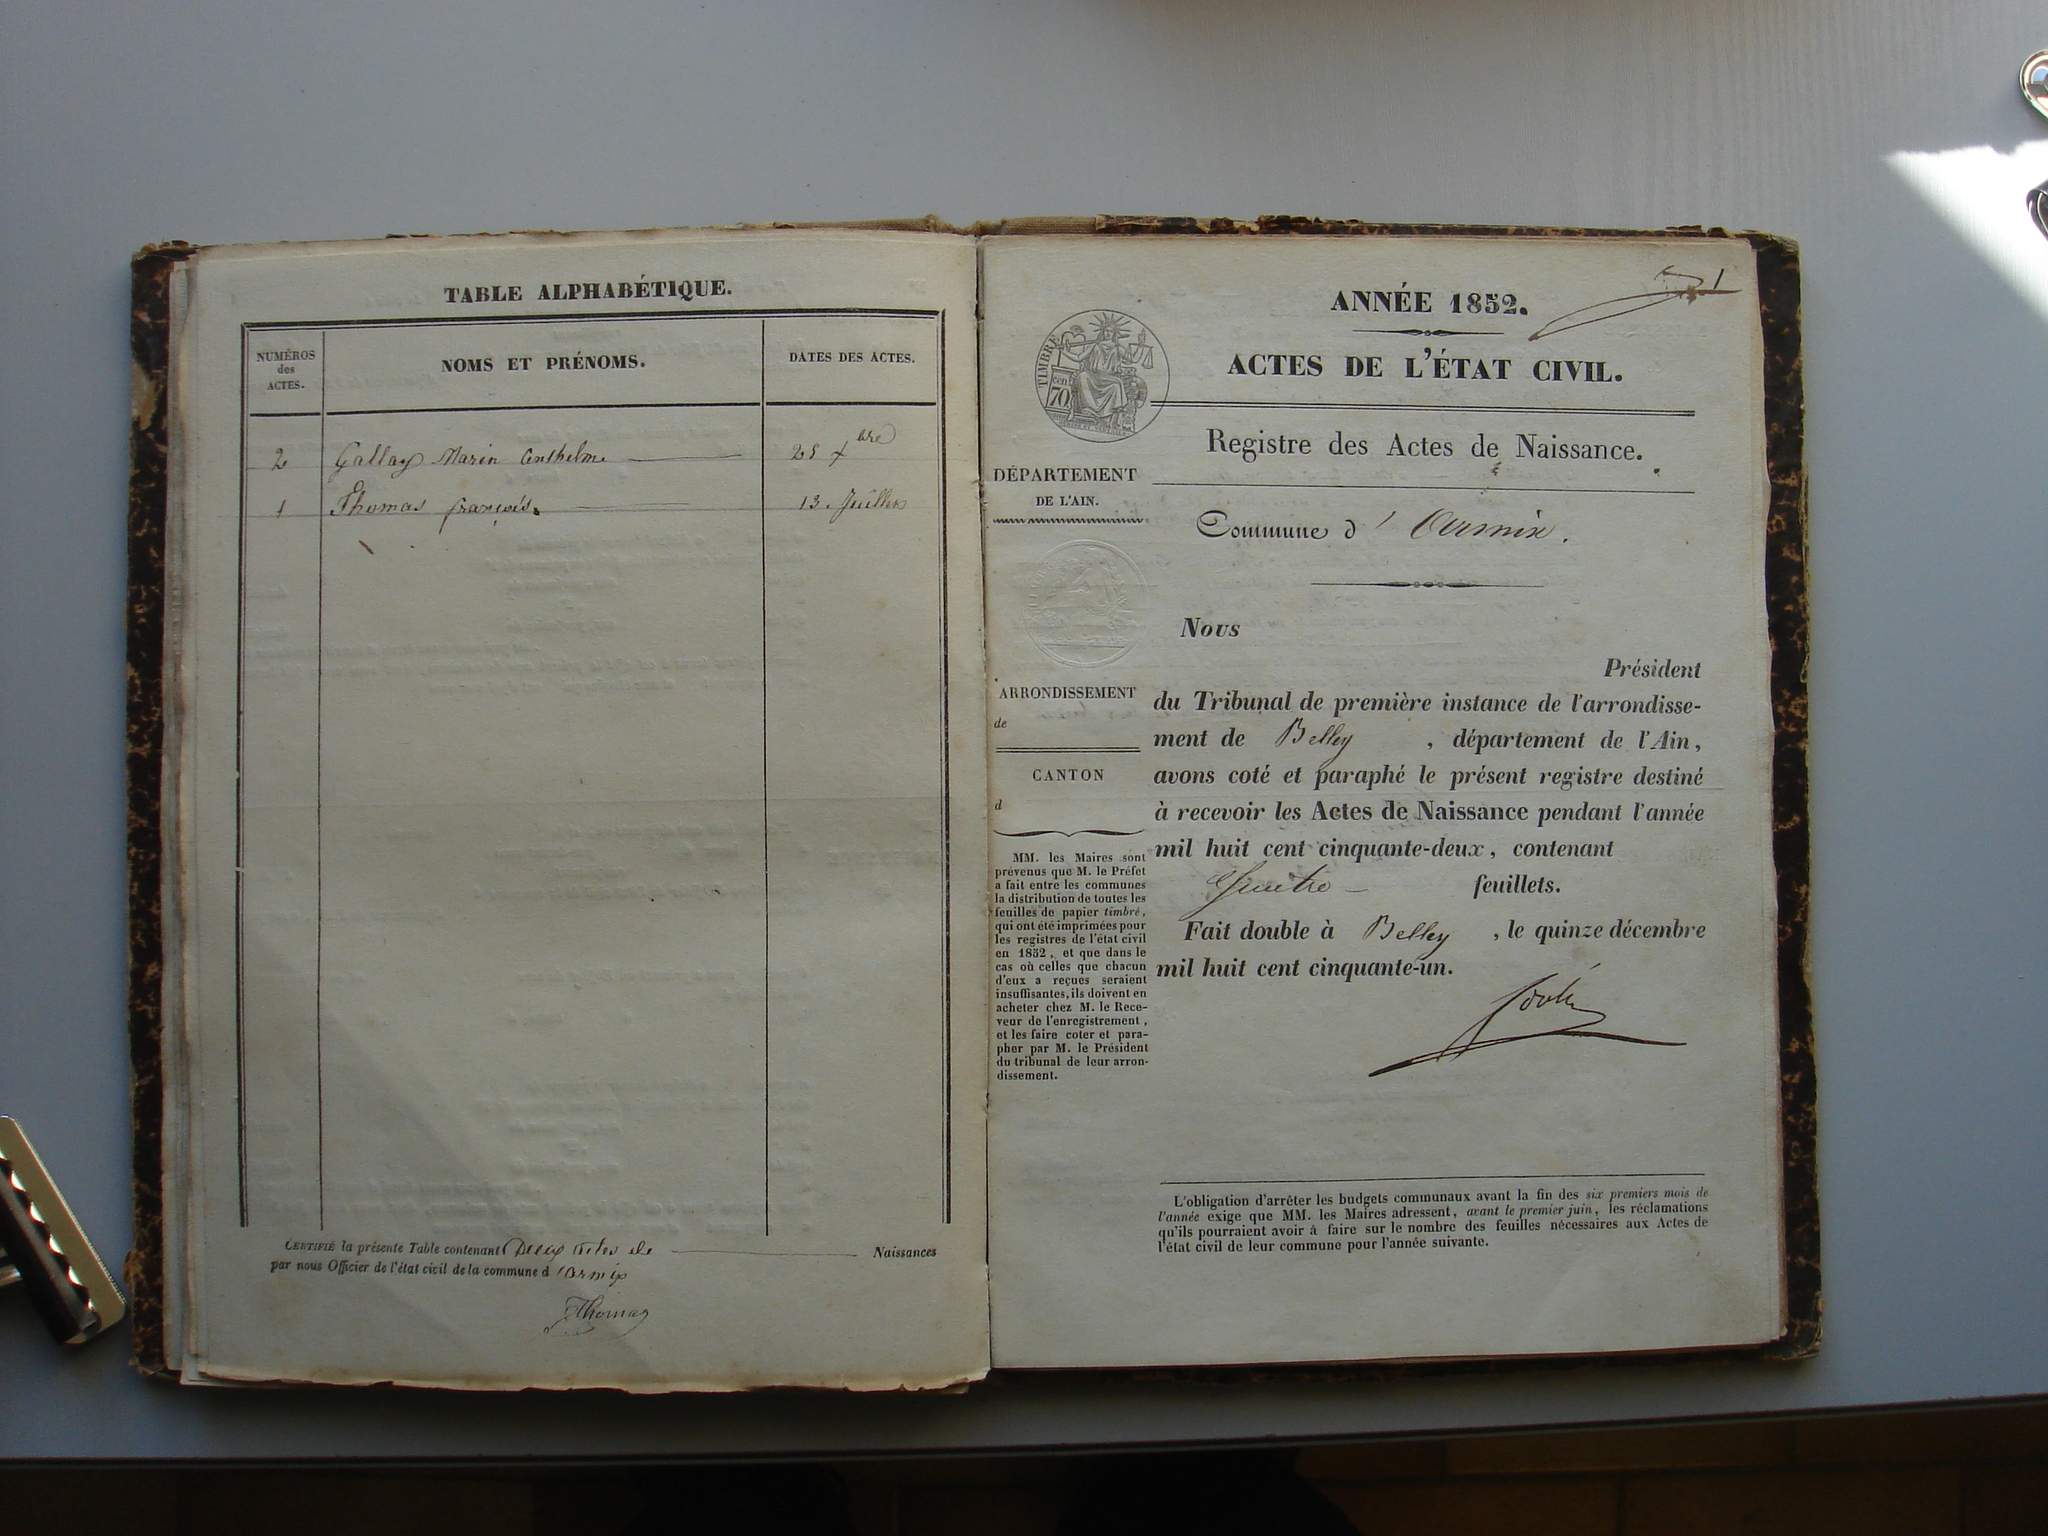 TABLE ALPHABÉTIQUE.
NUMÉROS
des
ACTES.
NOMS ET PRÉNOMS.
DATES DES ACTES.
2 Gallay Marin Anthelme 28 Xbre
1 Thomas françois. 13. Juillet
CERTIFIÉ la présente Table contenant Deux actes de Naissances
par nous Officier de l'état civil de la commune d'ormix
Thomas
1
ANNÉE 1852.
ACTES DE L'ÉTAT CIVIL.
TIMBRE
cen
70
Registre des Actes de Naissance.
DÉPARTEMENT
DE L'AIN.
Commune d'Ormix.
Nous
Président
du Tribunal de première instance de l'arrondisse-
ment de Belley, département de l'Ain,
avons coté et paraphé le présent registre destiné
à recevoir les Actes de Naissance pendant l'année
mil huit cent cinquante-deux, contenant
Quatre feuillets.
Fait double à Belley, le quinze décembre
mil huit cent cinquante-un.
ARRONDISSEMENT
de
CANTON
d
MM. les Maires sont
prévenus que M. le Préfet
a fait entre les communes
la distribution de toutes les
feuilles de papier timbré,
qui ont été imprimées pour
les registres de l'état civil
en 1852, et que dans le
cas où celles que chacun
d'eux a reçues seraient
insuffisantes, ils doivent en
acheter chez M. le Rece-
veur de l'enregistrement,
et les faire coter et para-
pher par M. le Président
du tribunal de leur arron-
dissement.
L'obligation d'arrêter les budgets communaux avant la fin des six premiers mois de
l'année exige que MM. les Maires adressent, avant le premier juin, les réclamations
qu'ils pourraient avoir à faire sur le nombre des feuilles nécessaires aux Actes de
l'état civil de leur commune pour l'année suivante.